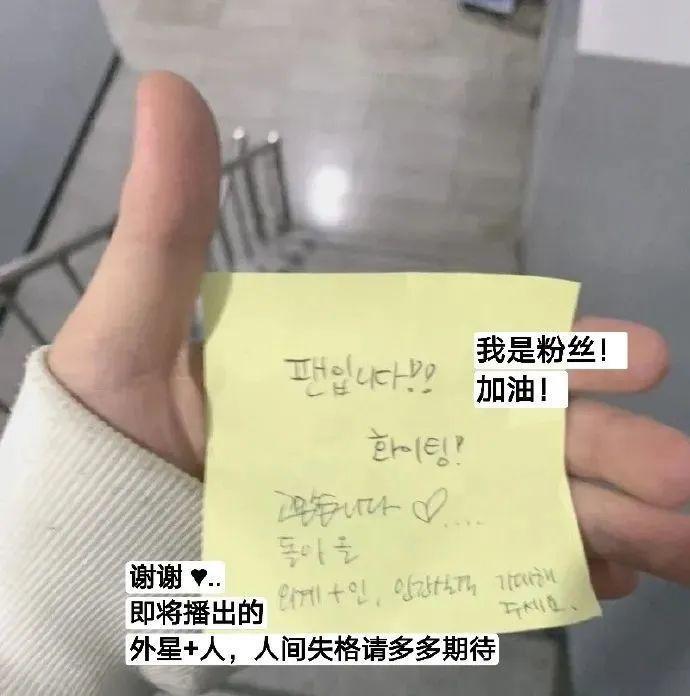 팬입니다!!
我是粉丝！
加油！
화이팅!
고맙습니다 ♡....
돌아올
외계+인, 인간실격 기대해
주세요.
谢谢 ♥..
即将播出的
外星+人，人间失格请多多期待